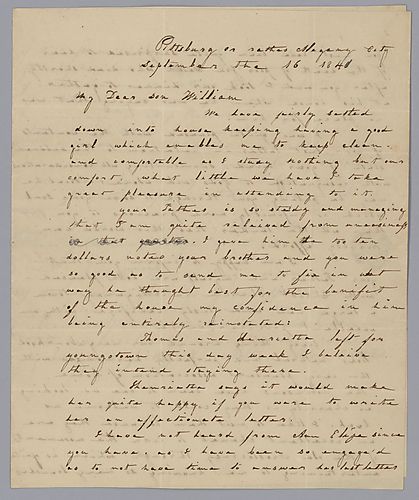 Pittsburg or rather Alegany City
September the 16 1841
My Dear son William
We have fairly setled
down into house keeping having a good
girl which enables me to keep clean.
and comfortable as I study nothing but our
comfort, what little we have I take
great pleasure in attending to it.
your Father is so steady and managing
that I am quite releived from uneasiness
that I gave him the too ten
dollars notes your brother and you were
so good as to send me to fix in what
way he thought best for the benifict
of the house my confidence in him
being enterely reinstated:
Thomas and Henrietta left for
youngstown this day week I beleive
they intend staying there.
Henrietta says it would make
her quite happy if you were to write
her an affectionate letter.
I have not heard from Ann Eliza since
you have. as I have been so engage'd
as to not have time to answer her last letter